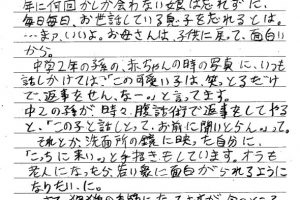 年に何回かしか会わない娘は忘れずに、
毎日毎日、お世話している息子を忘れるとは。
…まァ、いいよ。お母さんは、子供に戻って、面白い
から。
中学2年の孫の、赤ちゃんの時の写真に、いつも
話しかけては、「この可愛い子は、笑っとるだけ
で、返事をせん、なー。」と言ってます。
中2の孫が、時々、腹話術で返事をしてやる
と、「この子と話しとって、お前に聞いとらん。」って。
それとか、洗面所の鏡に映った自分に、
「こっちに来い。」と手招きもしています。オラも
老人になったら、若い衆に面白がられるように
なりたい、に。